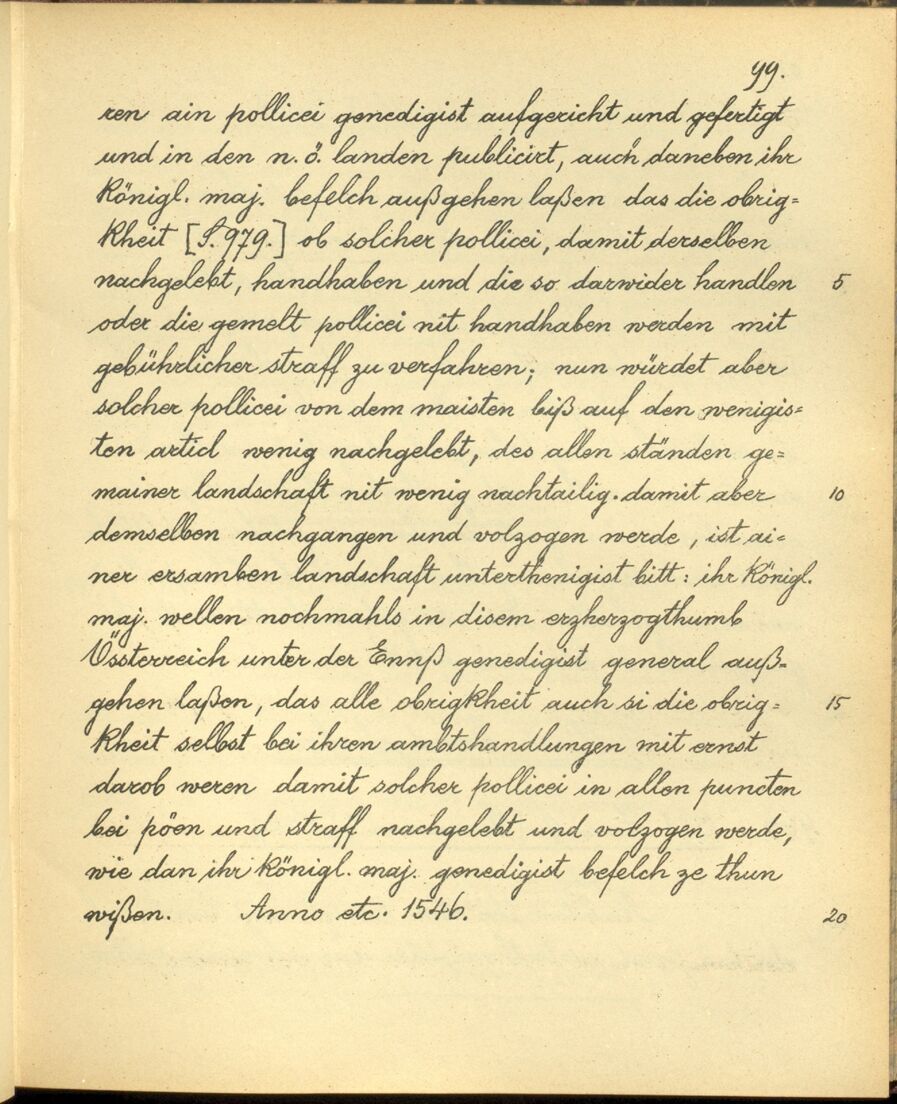 99.
ren ain pollicei genedigist aufgericht und gefertigt
und in den n. ö. landen publicirt, auch daneben ihr
königl. maj. befelch außgehen laßen das die obrig=
kheit [S. 979.] ob solcher pollicei, damit derselben
nachgelebt, handhaben und die so darwider handlen 5
oder die gemelt pollicei nit handhaben werden mit
gebührlicher straff zu verfahren; nun würdet aber
solcher pollicei von dem maisten biß auf den wenigis=
ten articl wenig nachgelebt, des allen ständen ge=
mainer landschaft nit wenig nachtailig. damit aber 10
demselben nachgangen und volzogen werde, ist ai=
ner ersamben landschaft unterthenigist bitt: ihr königl.
maj. wellen nochmahls in disem erzherzogthumb
Össterreich unter der Ennß genedigist general auß=
gehen laßen, das alle obrigkheit auch si die obrig= 15
kheit selbst bei ihren ambtshandlungen mit ernst
darob weren damit solcher pollicei in allen puncten
bei pöen und straff nachgelebt und volzogen werde,
wie dan ihr königl. maj. genedigist befelch ze thun
wißen. Anno etc. 1546. 20